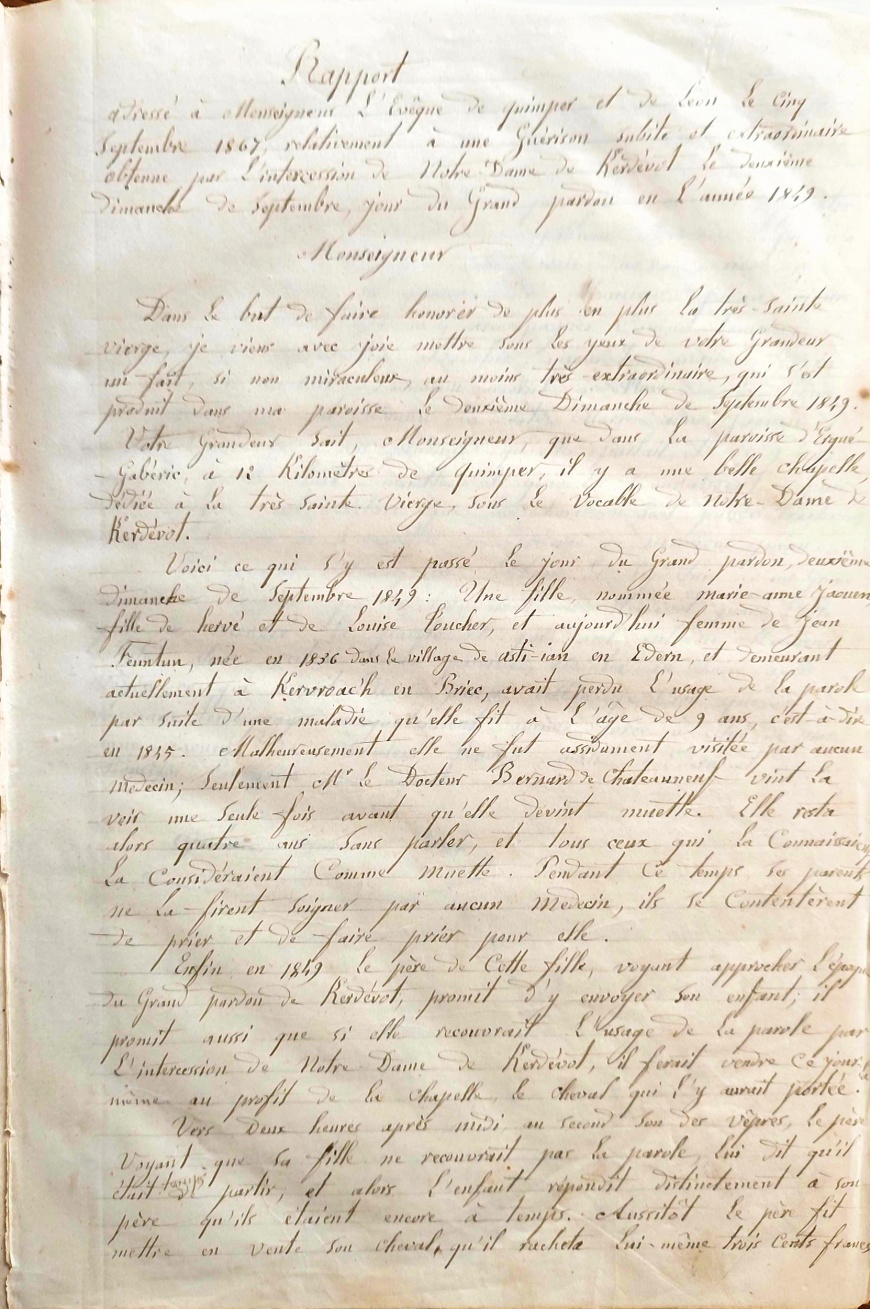 Rapport
adressé à Monseigneur L'Evêque de quimper et de Léon Le Cinq
Septembre 1867, relativement à une Guérison subite et extraordinaire
obtenue par L'intercession de Notre Dame de Kerdévot Le deuxième
dimanche de Septembre, jour du Grand pardon en L'année 1849.
Monseigneur
Dans Le but de faire honorer de plus en plus La très-Sainte
vierge, je viens avec joie mettre sous Les yeux de votre Grandeur
un fait, si non miraculeux, au moins très-extraordinaire, qui s'est
produit dans ma paroisse Le deuxième Dimanche de Septembre 1849.
Votre Grandeur Sait, Monseigneur, que dans La paroisse d'Ergué-
Gabéric, à 12 Kilomètres de quimper, il y a une belle chapelle,
dédiée à La très Sainte Vierge, sous Le vocable de Notre-Dame de
Kerdévot.
Voici ce qui s'y est passé Le jour du Grand pardon, deuxième
dimanche de Septembre 1849: Une fille, nommée marie-anne Jaouen,
fille de hervé et de Louise Coucher, et aujourd'hui femme de Jean
Feuntun, née en 1836 dans Le village de asti-ian en Edern, et demeurant
actuellement à Kervroac'h en Briec, avait perdu L'usage de la parole
par suite d'une maladie qu'elle fit à L'âge de 9 ans, c'est-à-dire
en 1845. Malheureusement elle ne fut assidument visitée par aucun
medecin; Seulement Mr Le Docteur Bernard de Chateauneuf vint La
voir une Seule fois avant qu'elle devint muette. Elle resta
alors quatre ans Sans parler, et tous ceux qui La Connaissaient
La Considéraient Comme muette. Pendant Ce temps Ses parents
ne La firent Soigner par aucun medecin, ils se Contentèrent
de prier et de faire prier pour elle.
Enfin en 1849 Le père de Cette fille, voyant approcher L'époque
du Grand pardon de Kerdévot, promit d'y envoyer Son enfant; il
promit aussi que si elle recouvrait L'usage de La parole par
L'intercession de Notre Dame de Kerdévot, il ferait vendre ce jour-là
même au profit de la chapelle, le cheval qui l'y aurait portée.
Vers Deux heures après midi au second Son des vêpres, Le père
Voyant que Sa fille ne recouvrait pas La parole, Lui dit qu'il
était temps partir, et alors L'enfant répondit distinctement à son
père qu'ils étaient encore à temps. Aussitôt Le père fit
mettre en vente son cheval, qu'il racheta Lui-même trois Cents francs